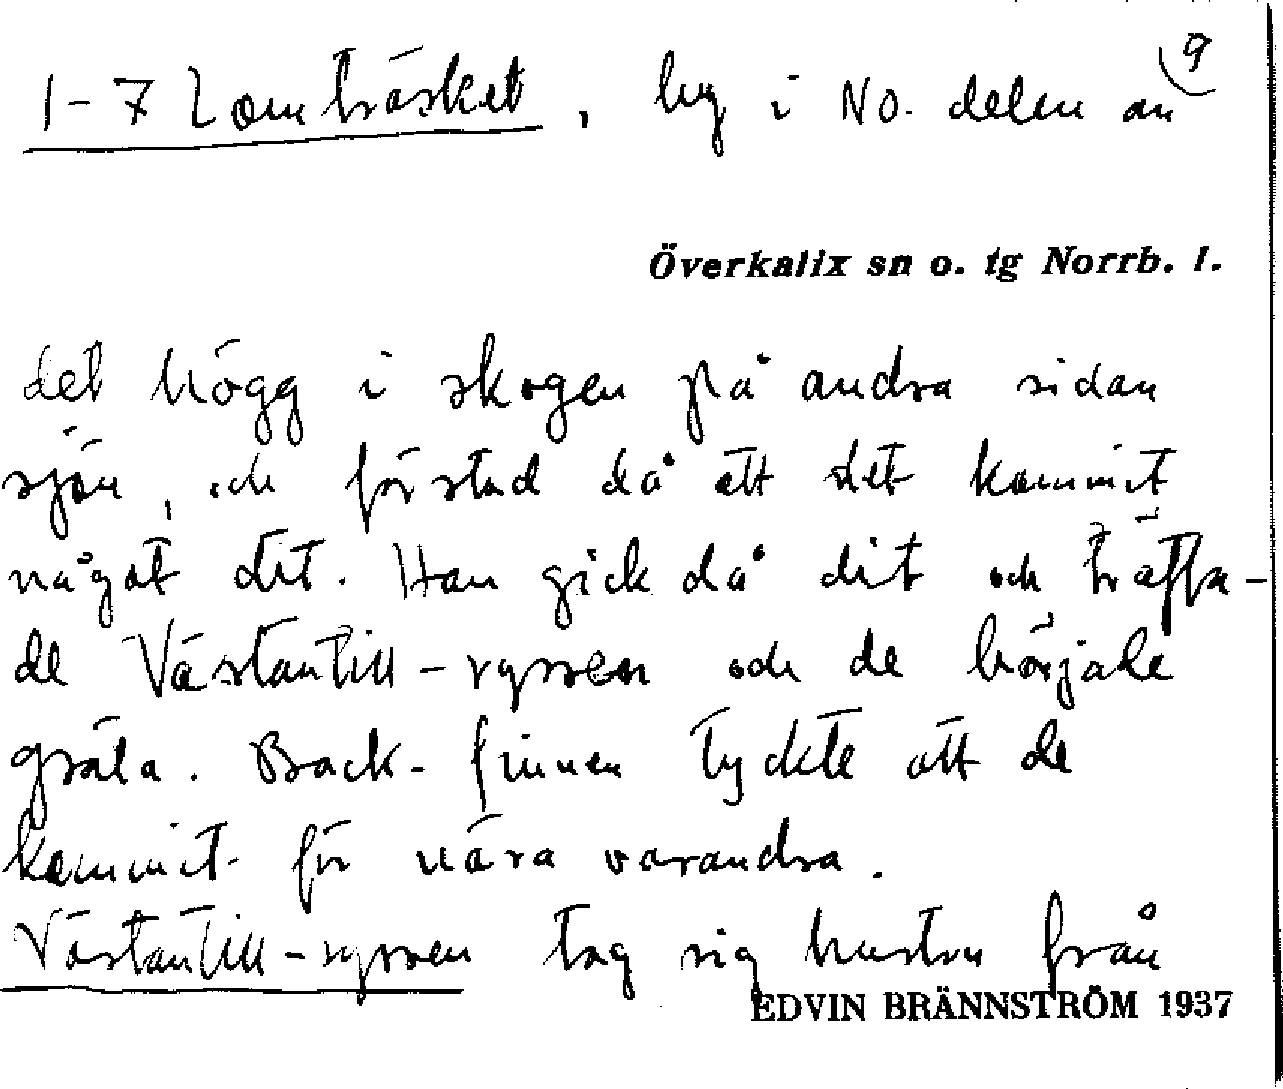 9
1-7 Lomträsket, by i NO. delen av
Överkalix sn o. tg Norrb. l.
det högg i skogen på andra sidan
sjön, och förstod då att det kommit
något dit. Han gick då dit och träffa-
de Västantill-ryssen och de började
gräla. Back-finnen tyckte att de
kommit för nära varandra.
Västantill-ryssen tog sig hustru från
EDVIN BRÄNNSTRÖM 1937